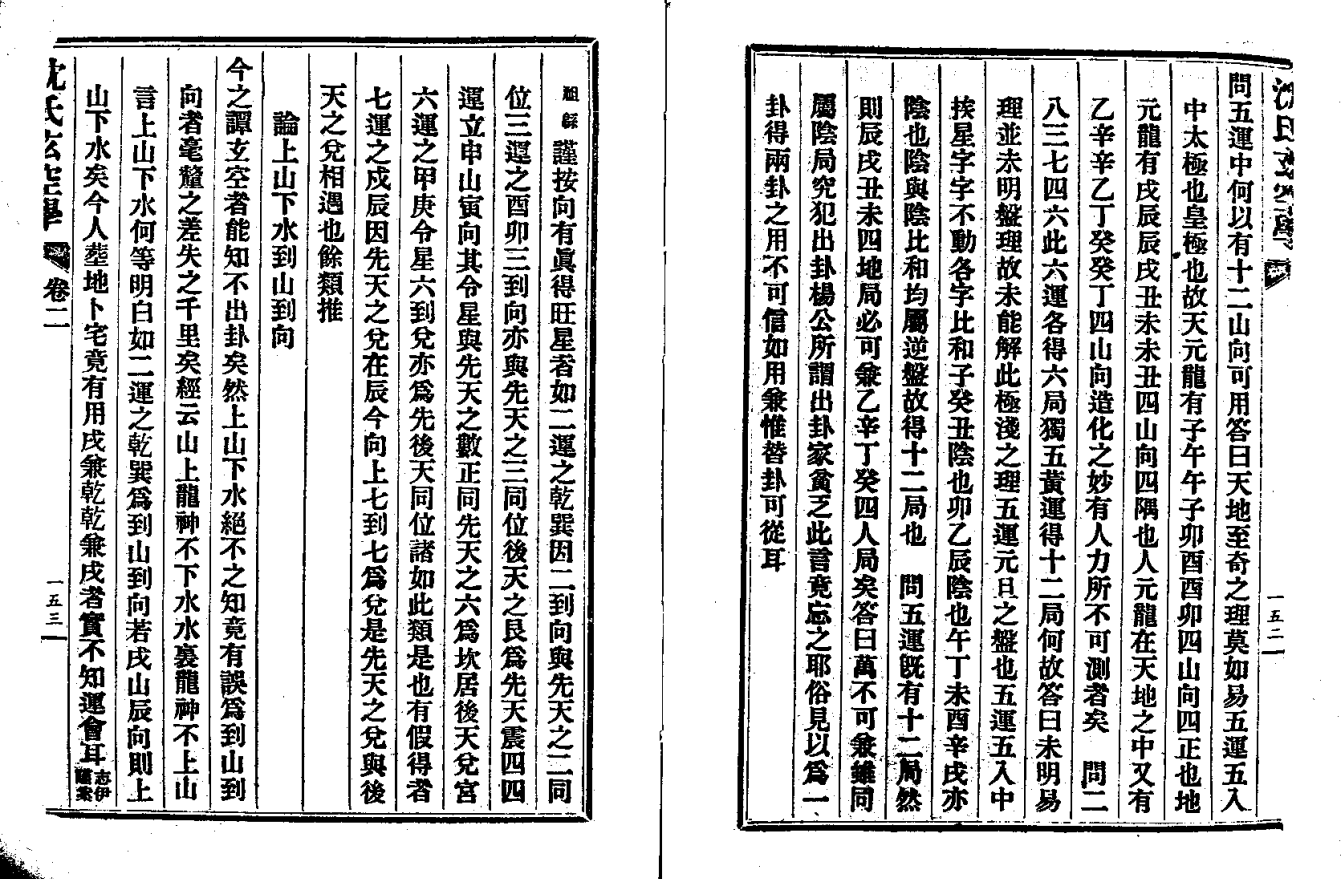 沈氏玄空學
一五二
問五運中何以有十二山向可用答曰天地至奇之理莫如易五運五入
中太極也皇極也故天元龍有子午午子卯酉酉卯四山向四正也地
元龍有戌辰辰戌丑未未丑四山向四隅也人元龍在天地之中又有
乙辛辛乙丁癸癸丁四山向造化之妙有人力所不可測者矣　問二
八三七四六此六運各得六局獨五黃運得十二局何故答曰未明易
理並未明盤理故未能解此極淺之理五運元旦之盤也五運五入中
挨星字字不動各字比和子癸丑陰也卯乙辰陰也午丁未酉辛戌亦
陰也陰與陰比和均屬逆盤故得十二局也　問五運旣有十二局然
則辰戌丑未四地局必可兼乙辛丁癸四人局矣答曰萬不可兼雖同
屬陰局究犯出卦楊公所謂出卦家貧乏此言竟忘之耶俗見以爲一
卦得兩卦之用不可信如用兼惟替卦可從耳
祖緜謹按向有眞得旺星者如二運之乾巽因二到向與先天之二同
位三運之酉卯三到向亦與先天之三同位後天之艮爲先天震四四
運立申山寅向其令星與先天之數正同先天之六爲坎居後天兌宮
六運之甲庚令星六到兌亦爲先後天同位諸如此類是也有假得者
七運之戍辰因先天之兌在辰今向上七到七爲兌是先天之兌與後
天之兌相遇也餘類推
論上山下水到山到向
今之譚玄空者能知不出卦矣然上山下水絕不之知竟有誤爲到山到
向者毫釐之差失之千里矣經云山上龍神不下水水裏龍神不上山
言上山下水何等明白如二運之乾巽爲到山到向若戌山辰向則上
山下水矣今人塟地卜宅竟有用戌兼乾乾兼戌者實不知運會耳志伊
謹案
沈氏玄空學
卷二
一五三